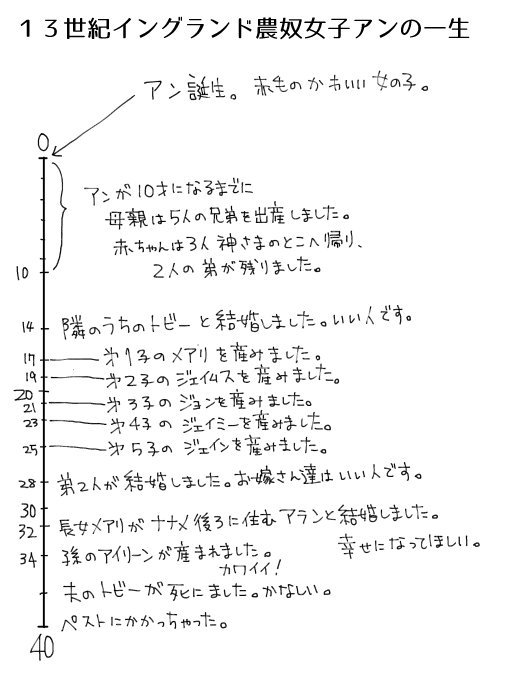 13世紀イングランド農奴女子アンの一生
アン誕生。赤毛のかわいい女の子。
0
アンが10才になるまでに
母親は5人の兄弟を出産しました。
赤ちゃんは3人神さまのとこへ帰り、
2人の弟が残りました。
10
14 隣のうちのトビーと結婚しました。いい人です。
17 第1子のメアリを産みました。
19 第2子のジェイムスを産みました。
20
21 第3子のジョンを産みました。
23 第4子のジェイミーを産みました。
25 第5子のジェインを産みました。
28 弟2人が結婚しました。お嫁さん達はいい人です。
30
32 長女メアリがナナメ後ろに住むアランと結婚しました。
幸せになってほしい。
34 孫のアイリーンが産まれました。
カワイイ!
夫のトビーが死にました。かなしい。
ペストにかかっちゃった。
40